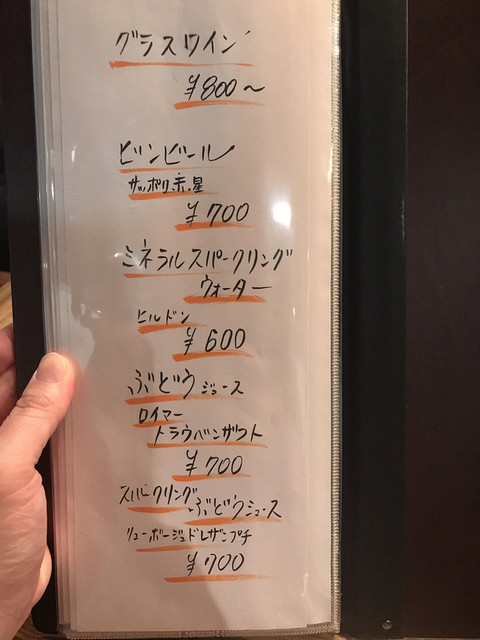 グラスワイン
¥800〜
ビンビール
サッポロ赤星
¥700
ミネラルスパークリング
ウォーター
ヒルドン
¥600
ぶどうジュース
ロイマー
トラウベンザフト
¥700
スパークリング
ぶどうジュース
リューボージュドレザンプチ
¥700